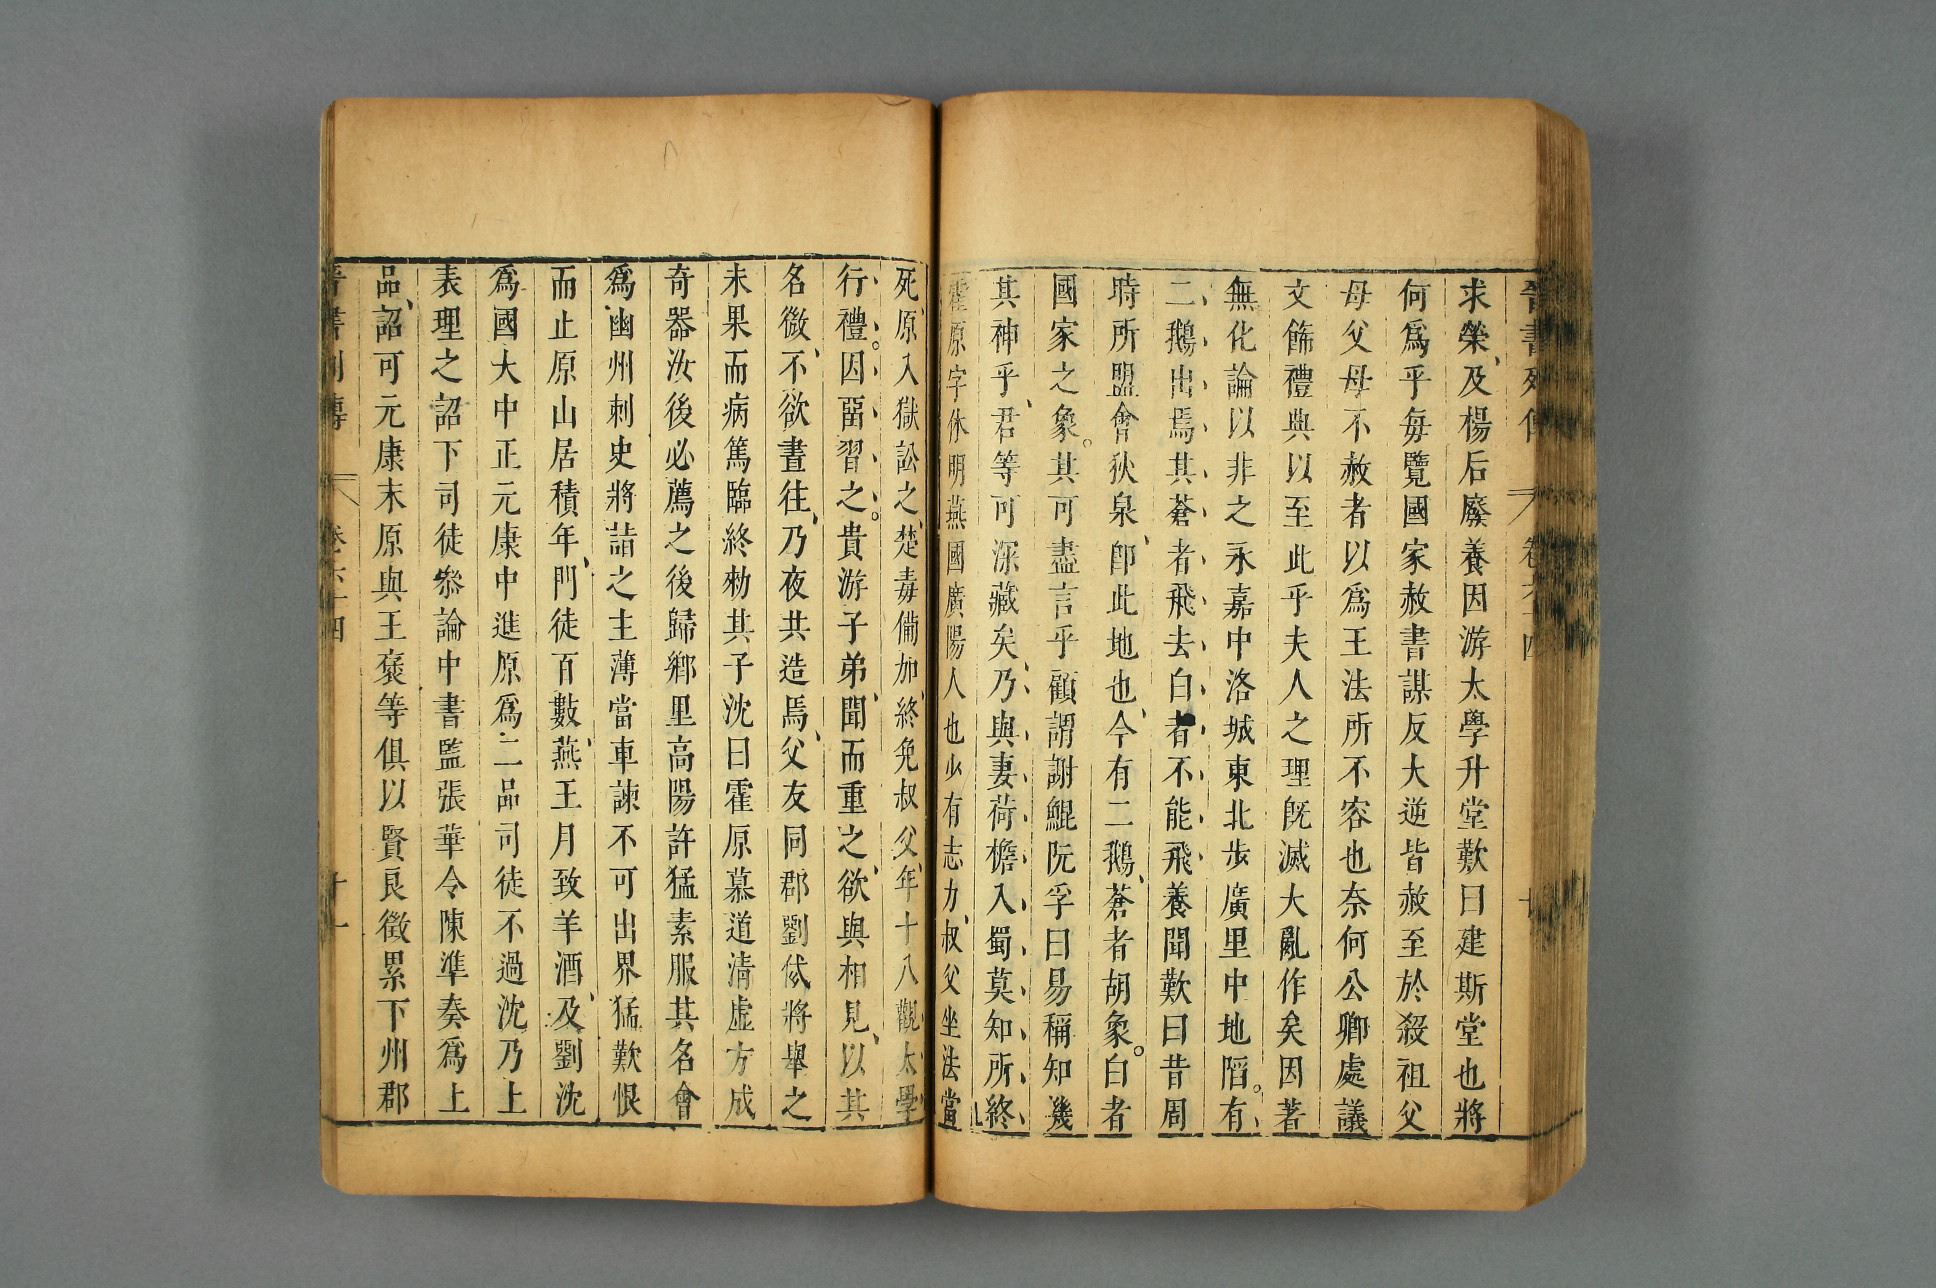 晉書列傳 卷六十四
求榮及楊后廢養因游太學升堂歎曰建斯堂也將
何爲乎每覽國家赦書謀反大逆皆赦至於殺祖父
母父母不赦者以爲王法所不容也奈何公卿處議
文飾禮典以至此乎夫人之理旣滅大亂作矣因著
無化論以非之永嘉中洛城東北步廣里中地陷。有
二鵝出焉其蒼者飛去白者不能飛養聞歎曰昔周
時所盟會狄泉、卽此地也、今有二鵝、蒼者胡象。白者
國家之象。其可盡言乎顧謂謝鯤阮孚曰易稱知幾
其神乎、君等可深藏矣、乃與妻荷檐入蜀莫知所終
霍原字休明燕國廣陽人也少有志力、叔父坐法當
死、原入獄訟之、楚毒備加、終免叔父、年十八觀太學
行禮。因留習之。貴游子弟、聞而重之、欲與相見、以其
名微、不欲晝往、乃夜共造焉、父友同郡劉岱將舉之
未果而病篤臨終勑其子沈曰霍原慕道清虛方成
奇器汝後必薦之後歸鄉里高陽許猛素服其名會
爲幽州刺史將詣之主薄當車諫不可出界猛歎恨
而止原山居積年、門徒百數、燕王月致羊酒、及劉沈
爲國大中正元康中進原爲二品司徒不過沈乃上
表理之詔下司徒叅論中書監張華令陳準奏爲上
品、詔可元康末原與王褒等俱以賢良徵累下州郡
晉書列傳 卷六十四 十一